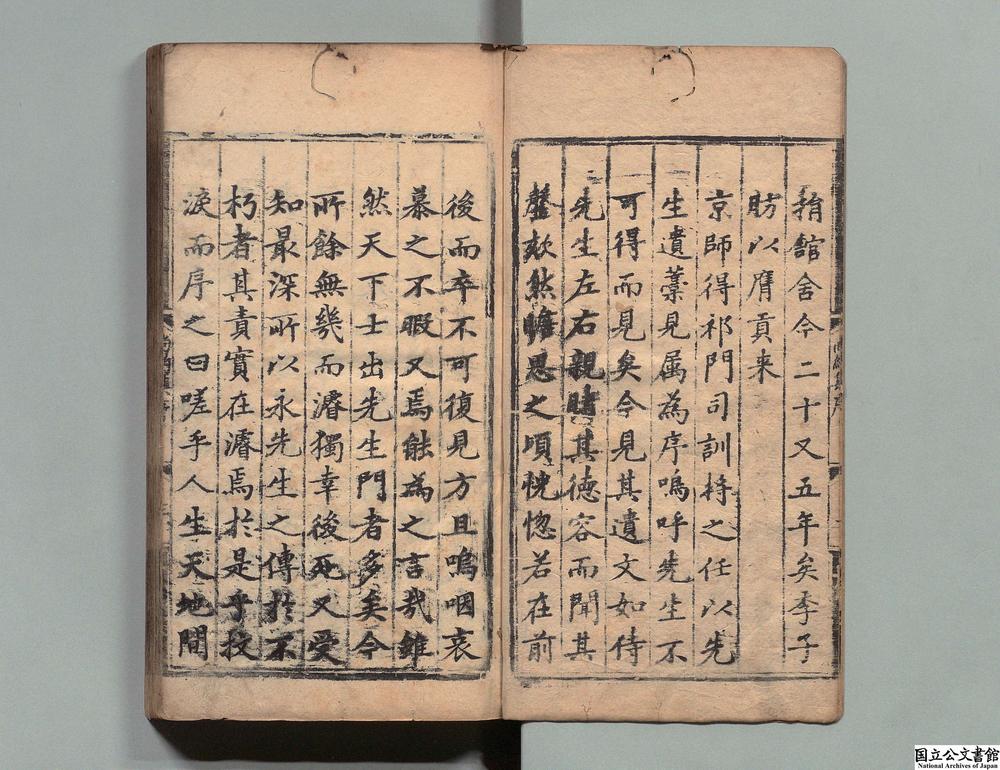 捐館舍今二十又五年矣季子
肪以膺貢来
京師得祁門司訓将之任以先
生遺藁見属為序嗚呼先生不
可得而見矣今見其遺文如侍
先生左右親睹其德容而聞其
謦欬然瞻思之頃恍惚若在前
後而卒不可復見方且嗚咽哀
慕之不暇又焉能為之言哉雖
然天下士出先生門者多矣今
所餘無幾而濬獨幸後死又受
知最深所以永先生之傳於不
朽者其責實在濬焉於是乎抆
淚而序之曰嗟乎人生天地間
国立公文書館
National Archives of Japan